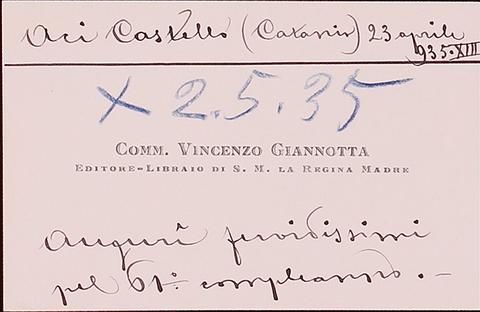 Aci Castello (Catania) 23 aprile
935·XIII
X 2.5.35
COMM. VINCENZO GIANNOTTA
EDITORE-LIBRAIO DI S. M. LA REGINA MADRE
Auguri fervidissimi
pel 61º compleanno.—